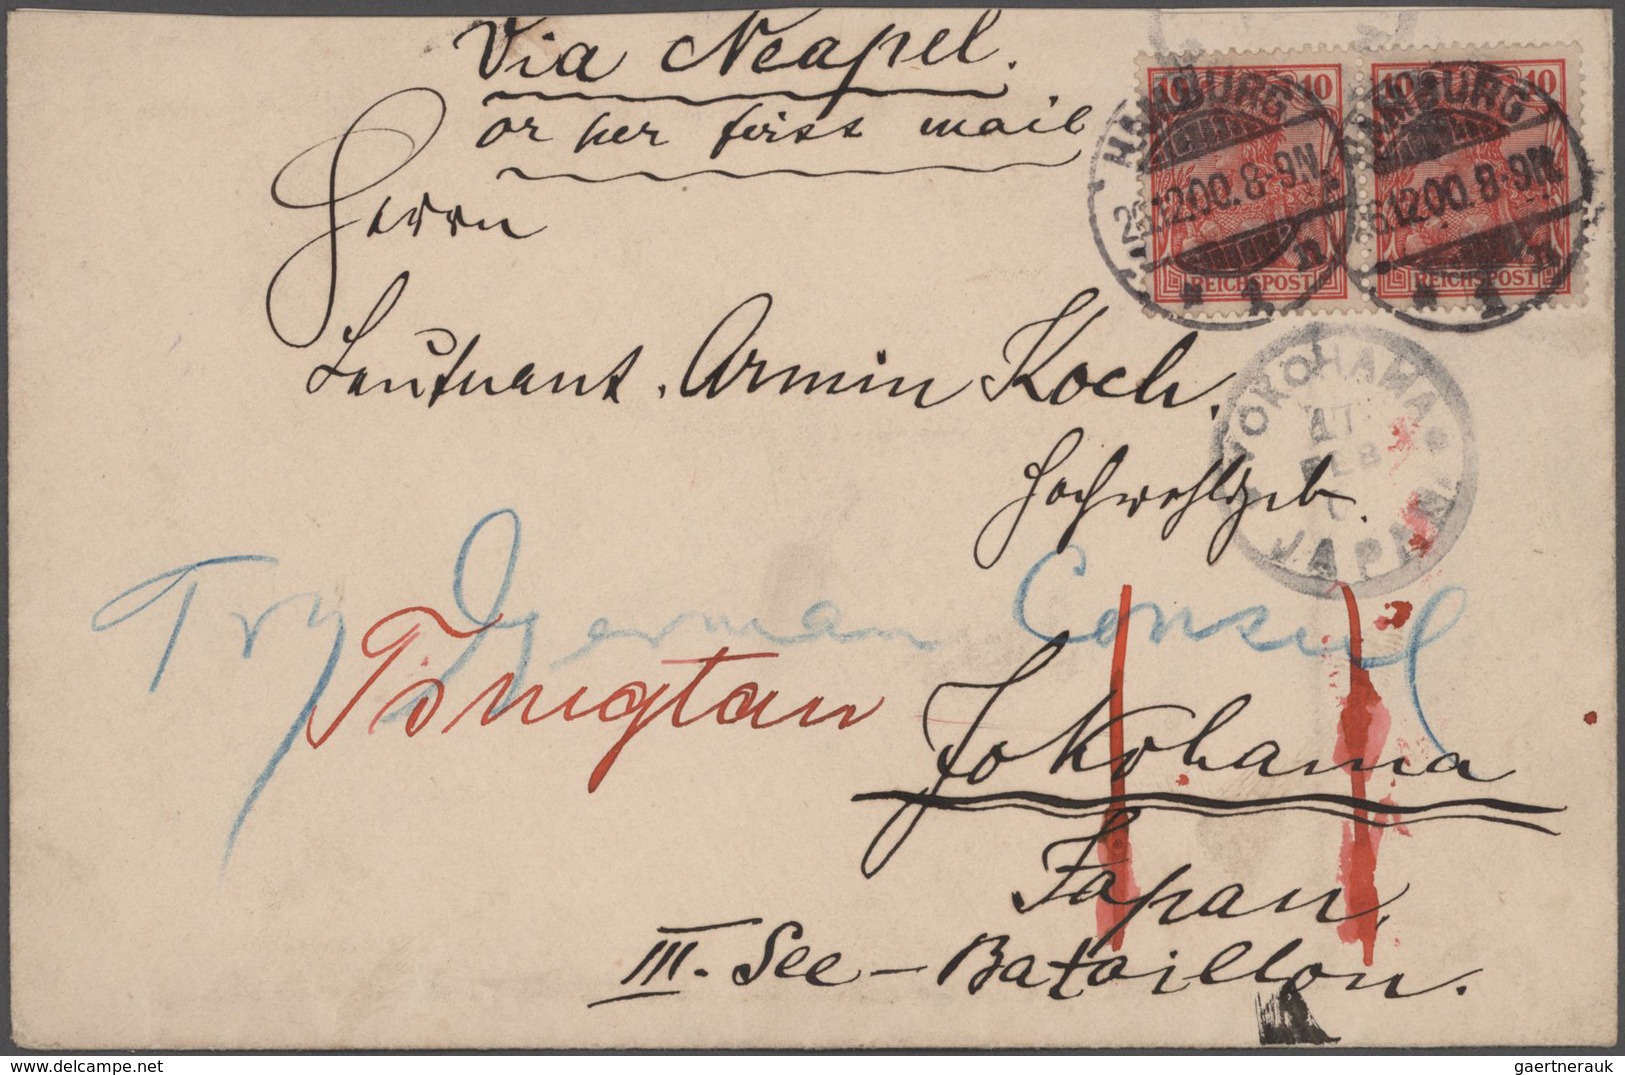 Via Neapel.
or per first mail
Herrn
Leutnant Armin Koch,
Hochwohlgeb.
Try German Consul
Tsingtau
Yokohama
Japan,
III. See-Bataillon.
10 10
REICHSPOST
10 10
REICHSPOST
HAMBURG
12.00. 8-9N.
* 1 n
HAMBURG
12.00. 8-9N.
* 1 n
YOKOHAMA
FEB
JAPAN
www.delcampe.net
gaertnerauk